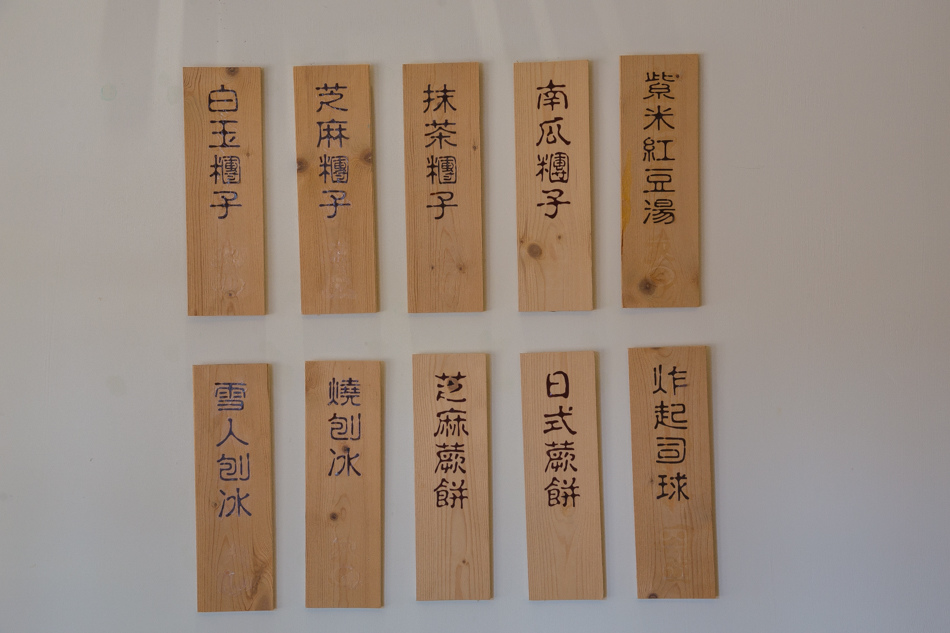 白玉糰子
芝麻糰子
抹茶糰子
南瓜糰子
紫米紅豆湯
雪人刨冰
燒刨冰
芝麻蕨餅
日式蕨餅
炸起司球